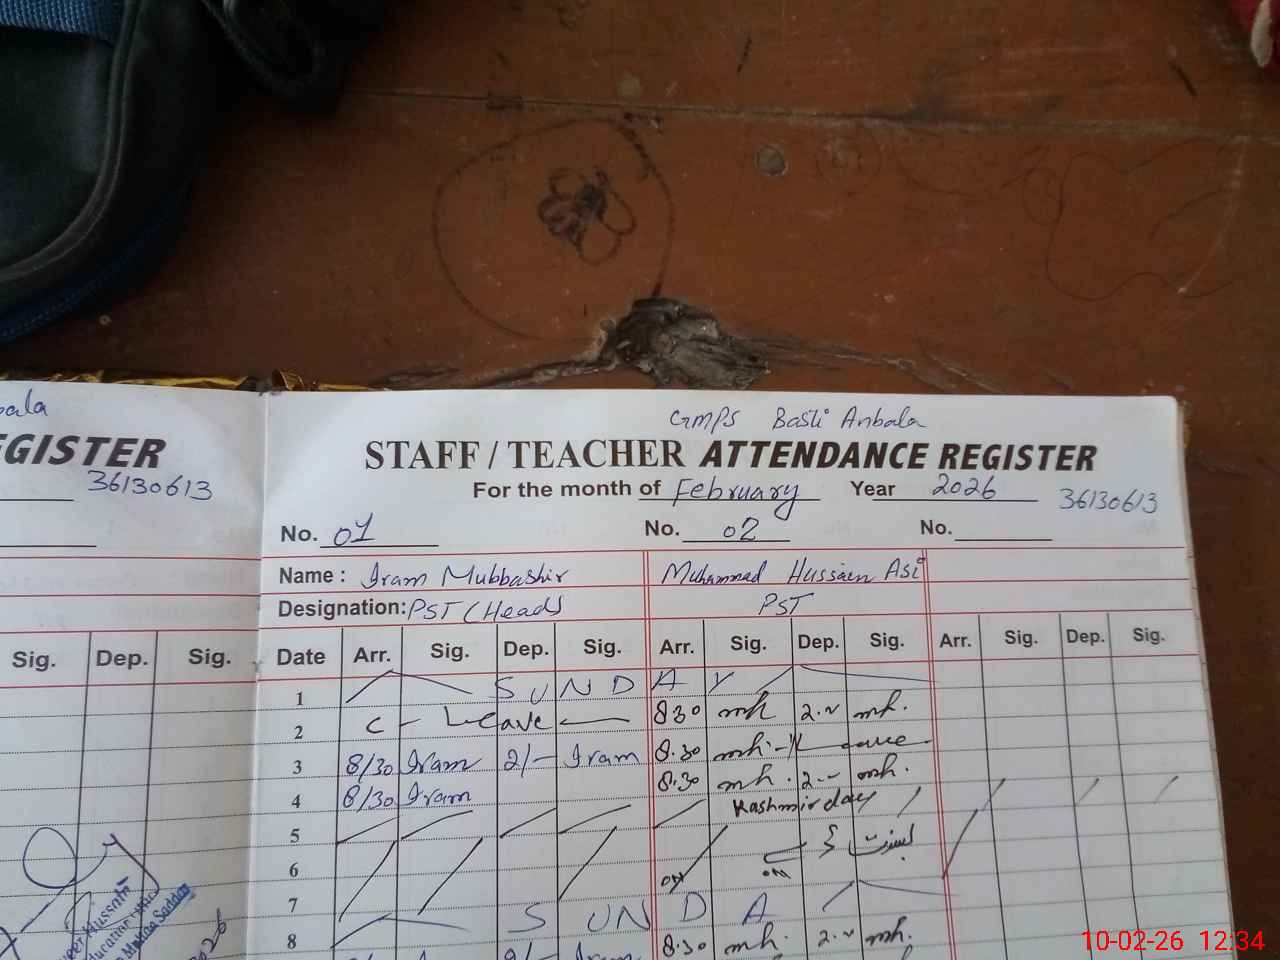 bala
GMPS Basti Anbala
EGISTER
STAFF / TEACHER ATTENDANCE REGISTER
36130613
For the month of February Year 2026 36130613
No. 01 No. 02 No.
Name : Iram Mubbashir Muhammad Hussain Asi
Designation: PST (Head) PST
Sig. Dep. Sig.
Date Arr. Sig. Dep. Sig. Arr. Sig. Dep. Sig. Arr. Sig. Dep. Sig.
1 S U N D A Y
2 C - Leave 8 30 mh 2.
3 8/30 Iram 2/- Iram 8.30 mh.
4 8/30 Iram 8.30 mh. 2. mh.
5 Kashmir day
6
7
8 S U N D A
8.30 mh. 2. mh.
10-02-26 12:34